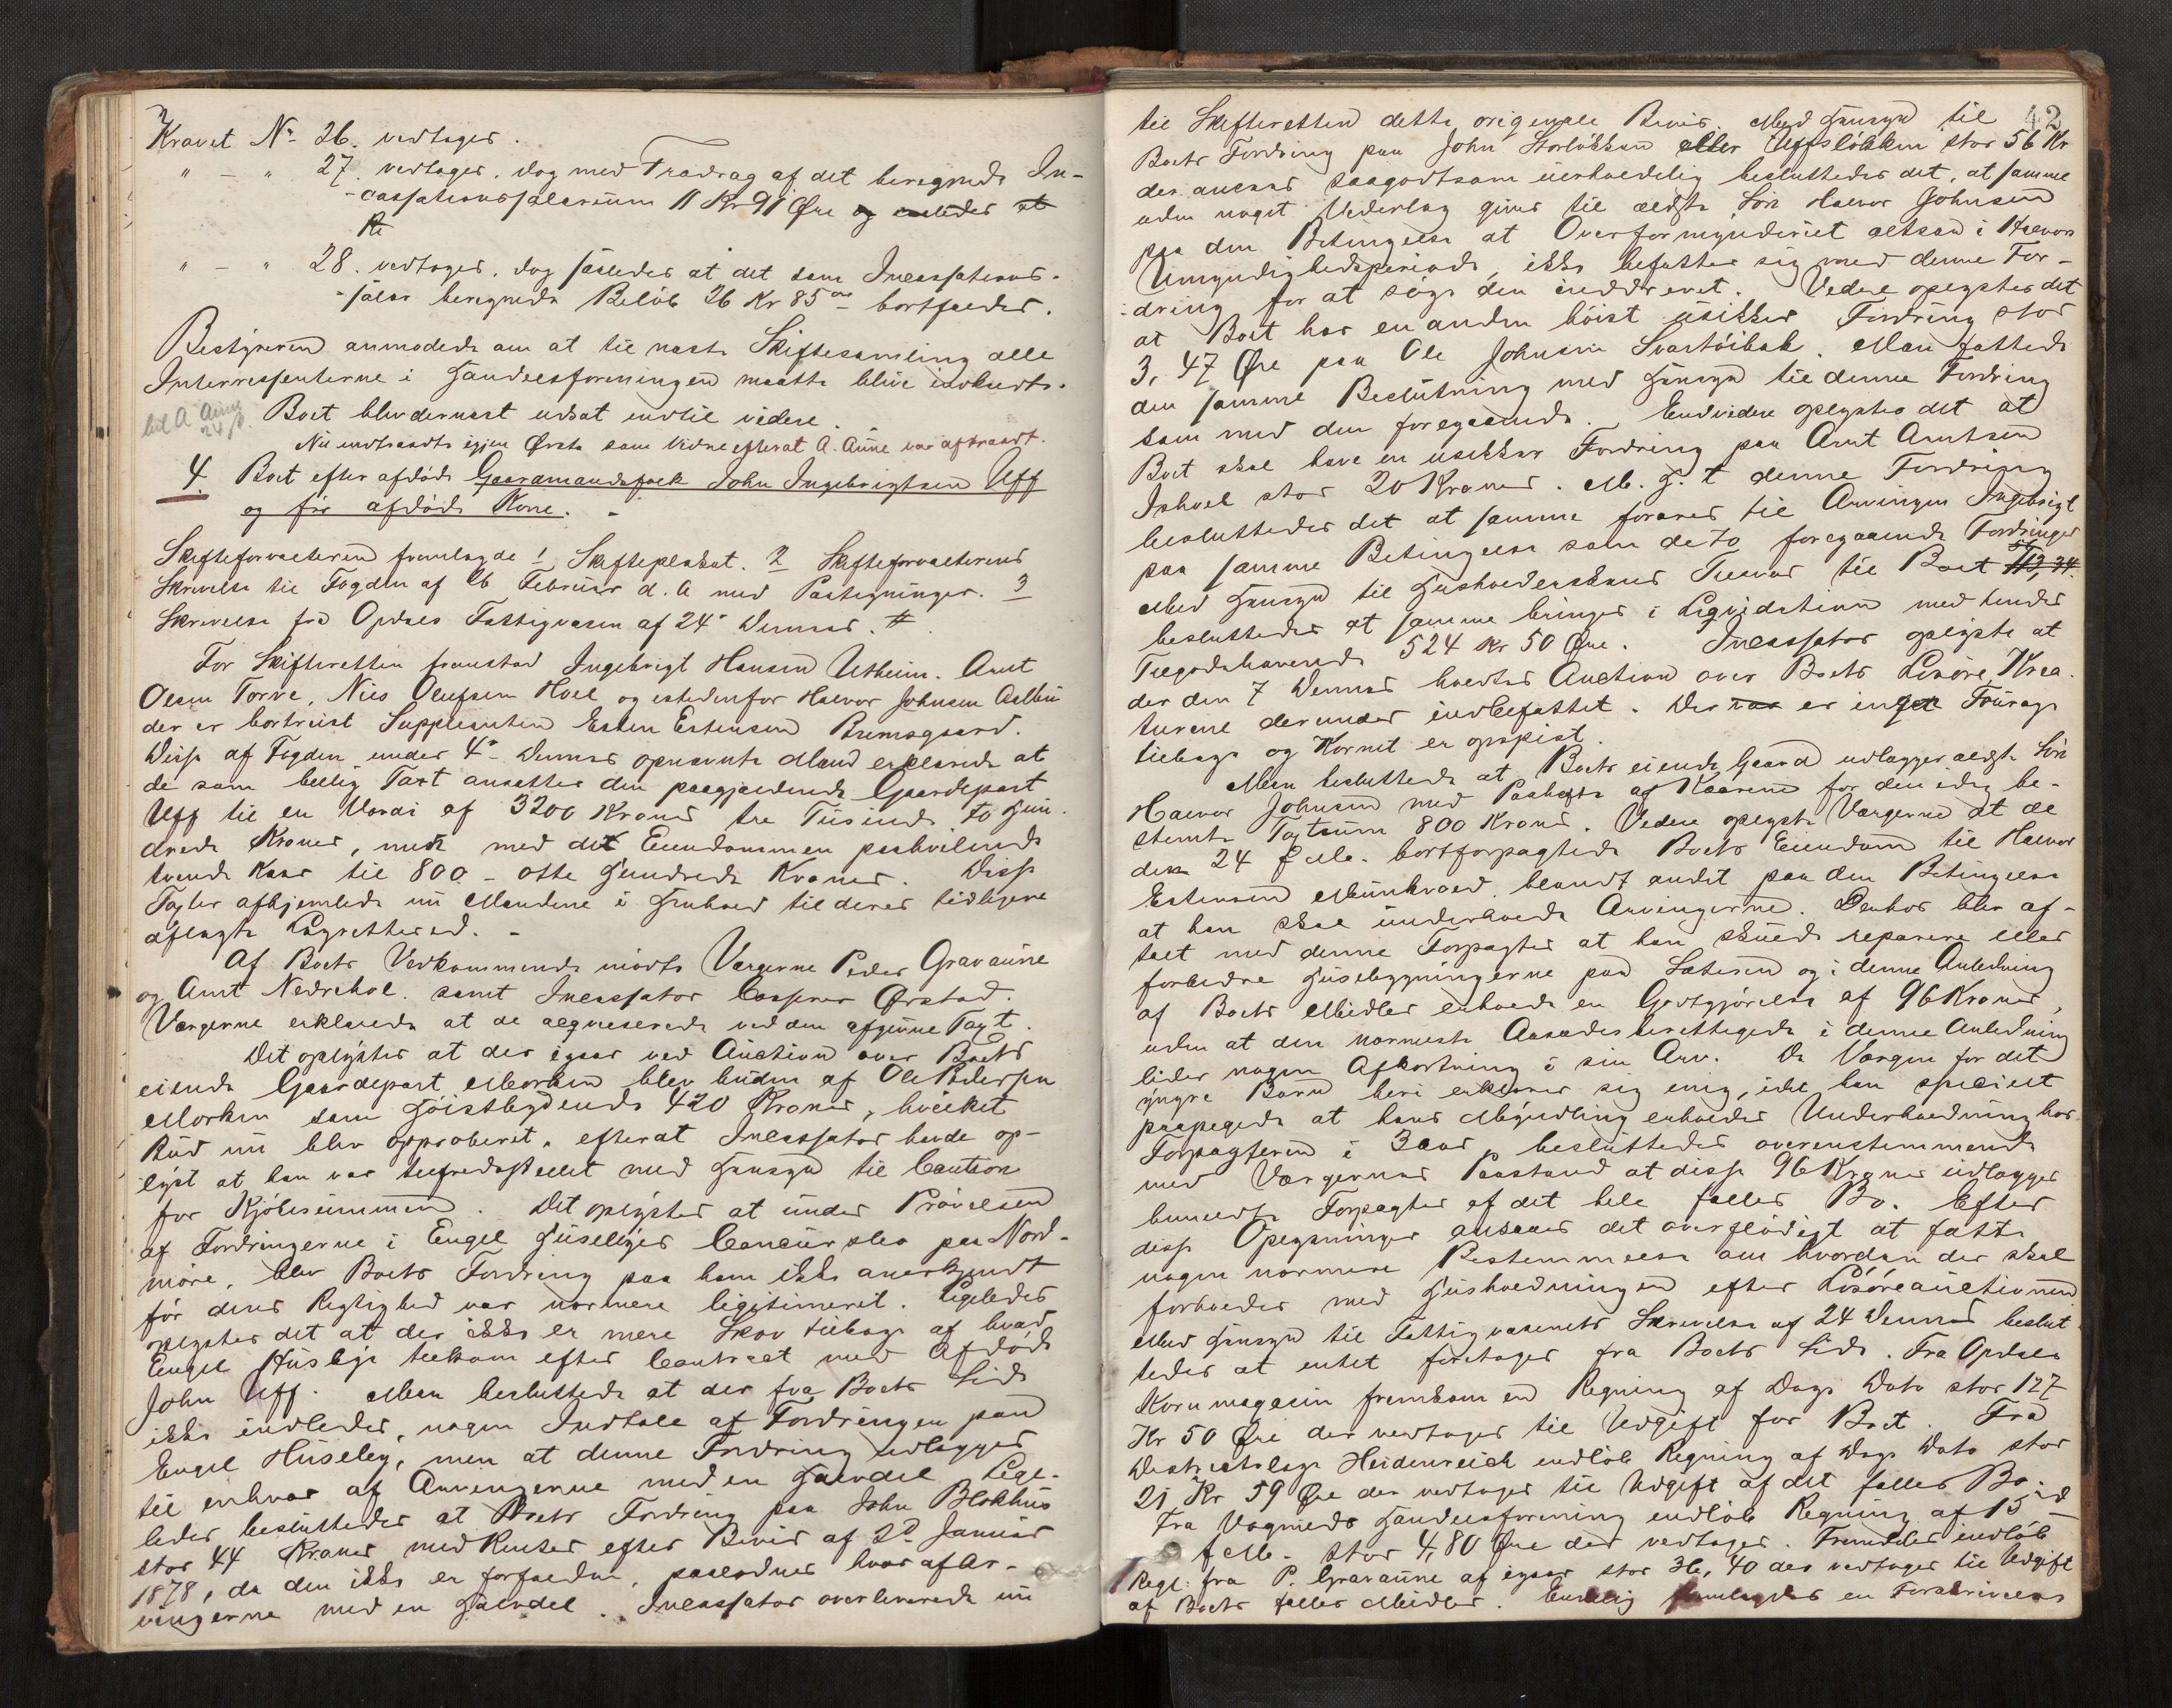 Kravet No 26. vedtages.
" - " 27. vedtages, dog med Fradrag af det beregnede In-
-cassationssalarium 11 Kr 91 Øre og
" - " 28. vedtages, dog saaledes at det som Incassations-
-salær beregnede Beløb 26 Kr 85 øre bortfalder.
Bestyreren anmodede om at til næste Skiftesamling alle
Interressenterne i Handelsforeningen maatte blive indkaldte.
Boet blev dernæst udsat indtil videre.
Nu indtraadte igjen Ørsta som Vidne efterat A. Aune var aftraadt.
4. Boet efter afdøde Gaardmandsfolk John Ingebrigtsen Uff
og før afdøde Kone. -
Skifteforvalteren fremlagde 1 Skifteplakat. 2 Skifteforvalterens
Skrivelse til Fogden af 26 Februar d. A med Paategninger. 3
Skrivelse fra Opdals Fattigvæsen af 24de dennes. #
For Skifteretten fremstod Ingebrigt Hansen Utheim. Arnt
Olsen Torve, Nils Olufsen Hoel og istedenfor Halvor Johnsen Aalbu
der er bortreist Supplianten Esten Estensen Bremsgaard.
Disse af Fogden under 4de dennes opnævnte Mænd erklærede at
de som billig Taxt ansatter den paagjældende Gaardepart
Uff til en Værdi af 3200 Kroner tre Tusinde to Hun-
drede Kroner, men med det Eiendommen paahvilende
Kaar til 800 - otte Hundrede Kroner. Disse
Taxter afhjemlede nu Mændene i Henhold til deres tidligere
aflagte Lagretteed. -
Af Boets Vedkommende mødte Værgerne Peder Gravaune
og Arnt Nedrehol. samt Incassator Casper Ørstad.
Værgerne erklærede at de acqviescerede ved den afgivne Taxt.
Det oplystes at der igaar ved Auction over Boets
eiende Gaardepart Morken blev buden af Ole Pedersen
Morken som Høistbydende 420 Kroner, hvilket
Bud nu blev approberet, efterat Incassator havde op-
lyst at han var tilfredsstillet med Hensyn til Caution
for Kjøbesummen. Det oplystes at under Prøvelsen
af Fordringerne i Engel Huselÿes Concursbo paa Nord-
møre, blev Boets Fordring paa ham ikke anerkjendt
før dens Rigtighed var nærmere legitimeret. Ligeledes
oplystes det at der ikke er mere Skov tilbage af hvad
Engel Huslÿe tilkom efter Contract med Afdøde
John Uff. Man besluttede at der fra Boets Side
ikke indledes nogen Indtale af Fordringen paa
Engel Huseby, men at denne Fordring udlægges
til enhver af Arvingerne med en Halvdel. Lige-
ledes besluttedes at Boets Fordring paa John Blokhus
stor 44 Kroner med Renter efter Bevis af 2d Januar
1878, da den ikke er forfalden, paalodnes hver af Ar-
vingerne med en Halvdel. Incassator overleverede nu
42
til Skifteretten dette originale Bevis. Med Hensyn til
Boets Fordring paa John Storløkken eller Uffsløkken stor 56 Kr
der ansees saagodtsom uerholdelig besluttedes det, at samme
uden noget Vederlag gives til ældste Søn Halvor Johnsen
paa den Betingelse at Overformynderiet altsaa i Halvors
Umyndighedsperiode, ikke befatter sig med denne For-
-dring for at søge den inddrevet. Videre oplystes det
at Boet har en anden høist usikker Fordring stor
3, 47 Øre paa Ole Johnsen Svartøibak. Man fattede
den samme Beslutning med Hensyn til denne Fordring
som med den foregaaende. Endvidere oplystes det at
Boet skal have en usikker Fordring paa Arnt Arntsen
Ishoel stor 20 Kroner. M. H. t denne Fordring
besluttedes det at samme foræres til Arvingen Ingebrigt
paa samme Betingelse som de to foregaaende Fordringer
Med Hensyn til Husholderskens Tilsvar til Boet
besluttedes at samme bringes i Liqvidation med hendes
Tilgodehavende 524 Kr 50 Øre. Incassator oplyste at
der den 7 dennes holdtes Auction over Boets Løsøre, Krea-
turene derunder indbefattet. Der er ingen Fourage
tilbage og Kornet er opspist.
Man besluttede at Boets eiende Gaard udlægges ældste Søn
Halvor Johnsen med Paahefte af Kaarene for den idag be-
stemte Taxtsum 800 Kroner. Videre oplyste Værgerne at de
den 24 f. M. bortforpagtede Boets Eiendom til Halvor
Estensen Munkvold blandt andet paa den Betingelse
at han skal underholde Arvingerne. Derhos blev af-
talt med denne Forpagter at han skulde reparere eller
forbedre Husebygningerne paa Sæteren og i denne Anledning
af Boets Midler erholde en Godtgjørelse af 96 Kroner,
uden at den nærmeste Aasædesberettigede i denne Anledning
lider nogen Afkortning i sin Arv. Da Værgen for det
yngre Barn heri erklærer sig enig, idet han specielt
paapegede at hans Myndling erholder Underholdning hos
Forpagteren i 3 Aar, besluttedes overensstemmende
med Værgernes Paastand at disse 96 Kroner udlægges
bemeldte Forpagter af det hele fælles Bo. Efter
disse Oplysninger ansaaes det overflødigt at fatte
nogen nærmere Bestemmelse om hvordan der skal
forholdes med Husholdningen efter Løsøreauctionen.
Med Hensyn til Fattigvæsenets Skrivelse af 24 dennes beslut-
tedes at intet foretages fra Boets Side. Fra Opdals
Kornmagasin fremkom en Regning af Dags Dato stor 127
Kr 50 Øre der vedtages til Udgift for Boet. Fra
Districtslæge Heidenreich indløb Regning af Dags Dato stor
21 Kr 59 Øre der vedtages til Udgift af det fælles Bo.
Fra Vognilds Handelsforening indløb Regning af 15de
f. M. stor 4,80 Øre der vedtages. Fremdeles indløb
Regn: fra P. Gravaune af igaar stor 36, 40 der vedtages til Udgift
af Boets fælles Midler. Endelig fremlagdes en Forskrivelse